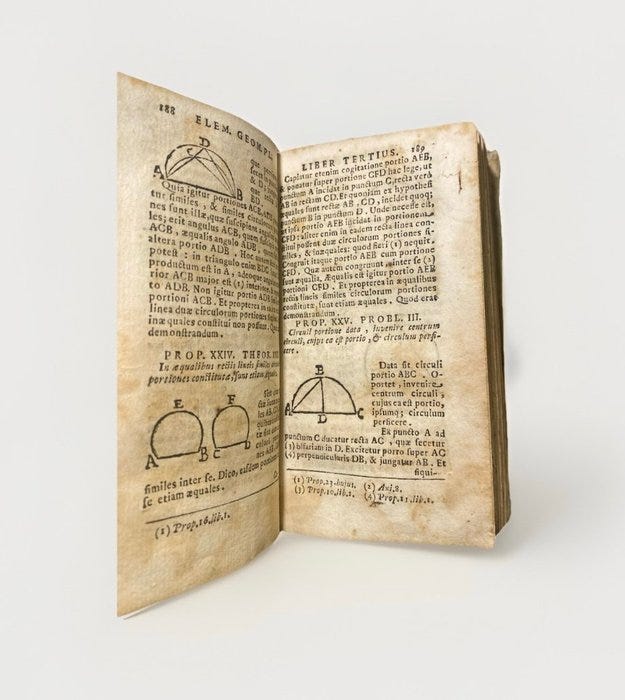 188 ELEM. GEOM. PL.
D
C
A
B
Quia igitur portiones ACB, ADB
tur similes, & similes circulorum
nes sunt illæ, quæ suscipiunt angulos
les; erit angulus ACB, quem suscipit
ACB, æqualis angulo ADB,
altera portio ADB. Hoc autem
potest: in triangulo enim BDC
productum est in A, adeoque
rior ACB major est (1) interiore
to ADB. Non igitur portio ADB
portioni ACB. Et propterea in eadem
linea duæ circulorum portiones similes
inæquales constitui non possunt. Quod
demonstrandum.
PROP. XXIV. THEOR.
In æqualibus rectis lineis similes
portiones constitutæ, sunt etiam
E
F
A
B
C
D
similes inter se. Dico, easdem portiones
se etiam æquales.
(1) Prop. 16. lib. 1.
LIBER TERTIUS. 189
Capiatur etenim cogitatione portio AEB,
& ponatur super portione CFD hac lege, ut
punctum A incidat in punctum C, recta verò
AB in rectam CD. Et quoniam ex hypothesi
æquales sunt rectæ AB, CD, incidet quoq;
punctum B in punctum D. Unde necesse est,
ut ipsa portio AEB incidat in portionem
CFD: aliter enim in eadem recta linea con-
stitui possent duæ circulorum portiones si-
miles, & inæquales: quod fieri (1) nequit.
Congruit itaque portio AEB cum portione
CFD. Quæ autem congruunt inter se (2)
sunt æqualia. Æqualis est igitur portio AEB
portioni CFD. Et propterea in æqualibus
rectis lineis similes circulorum portiones
constitutæ, sunt etiam æquales. Quod erat
demonstrandum.
PROP. XXV. PROBL. III.
Circuli portione data, invenire centrum
circuli, cujus ea est portio, & circulum perfi-
cere.
B
A
D
C
Data sit circuli
portio ABC. O-
portet, invenire
centrum circuli,
cujus ea est portio,
ipsumq; circulum
perficere.
Ex puncto A ad
punctum C ducatur recta AC, quæ secetur
(3) bifariam in D. Excitetur porro super AC
(4) perpendicularis DB, & jungatur AB. Et
siqui-
(1) Prop. 23. hujus. (2) Axi. 8.
(3) Prop. 10. lib. 1. (4) Prop. 11. lib. 1.